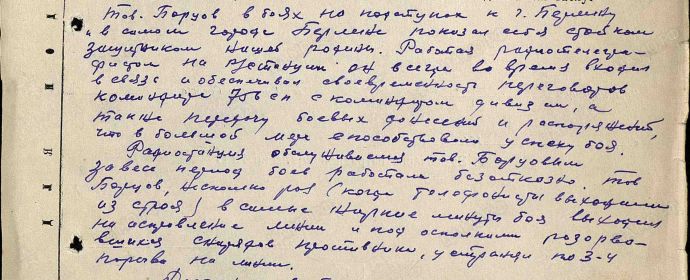 Тов. Борцов в боях на подступах к г. Берлину
и в самом городе Берлине показал себя стойким
защитником нашей родины. Работая радиотелегра-
фистом на р/станции он всегда во время входил
в связь и обеспечивал своевременность переговоров
командира 756 сп с командиром дивизии, а
также передачу боевых донесений и распоряжений,
что в большой мере способствовало успеху боя.
Радиостанция обслуживаемая тов. Борцовым
за весь период боев работала безотказно. Тов
Борцов, несколько раз (когда телефонисты выходили
из строя) в самые жаркие минуты боя выходил
на исправление линии и под осколками разорвав-
шихся снарядов противника, устранял по 3-4
порыва на линии.